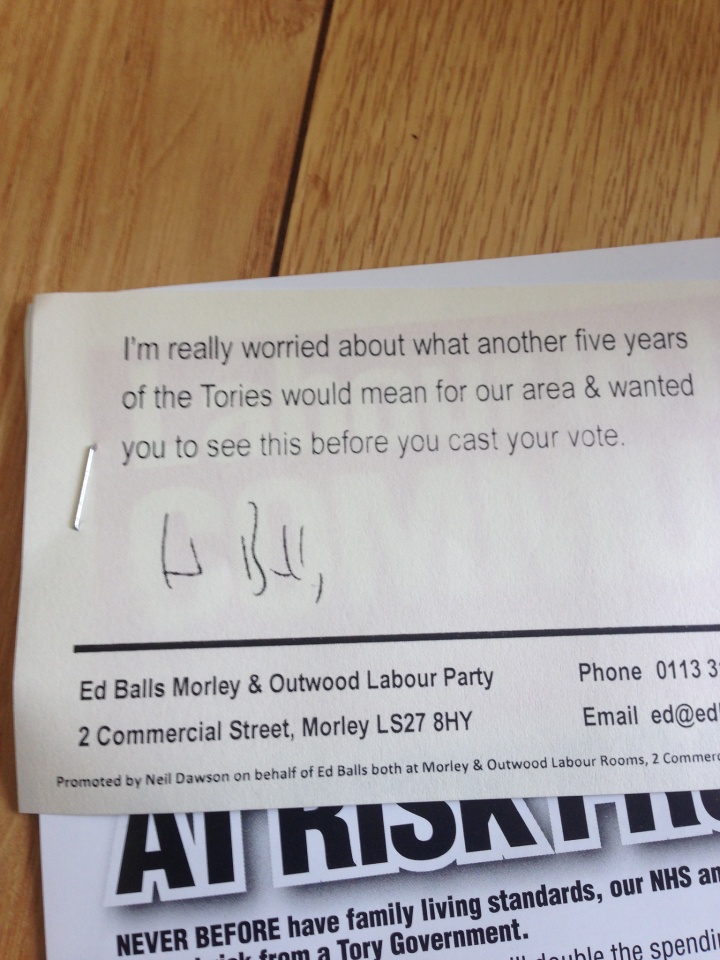 I'm really worried about what another five years
of the Tories would mean for our area & wanted
you to see this before you cast your vote.
Ed Balls
Ed Balls Morley & Outwood Labour Party Phone 0113 3
2 Commercial Street, Morley LS27 8HY Email ed@ed
Promoted by Neil Dawson on behalf of Ed Balls both at Morley & Outwood Labour Rooms, 2 Commerc
AT RISK FRO
NEVER BEFORE have family living standards, our NHS an
risk from a Tory Government.
double the spendin